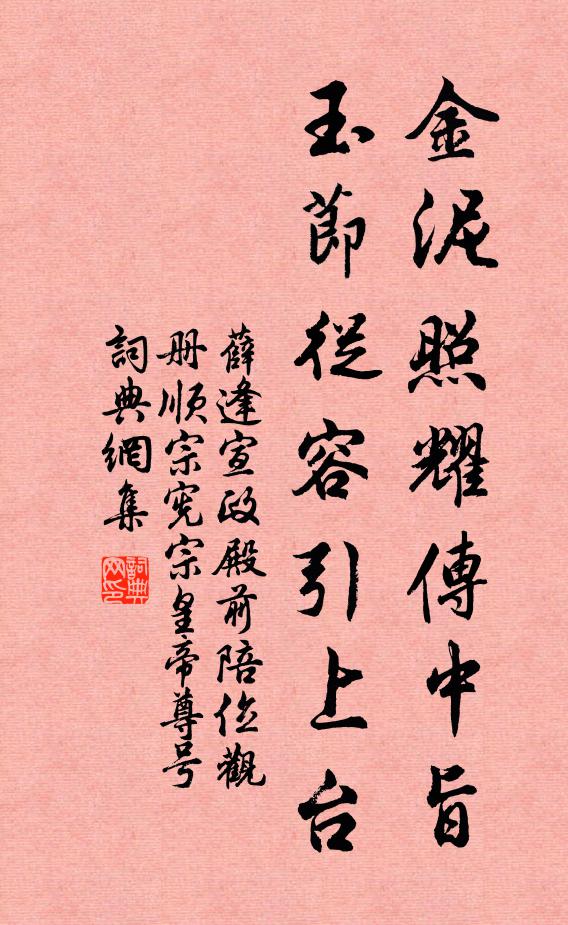 金泥照耀傳中旨
玉節從容引上台
薛逢宣政殿前陪位觀
册順宗宪宗皇帝尊号
詞典網集
詞典网印